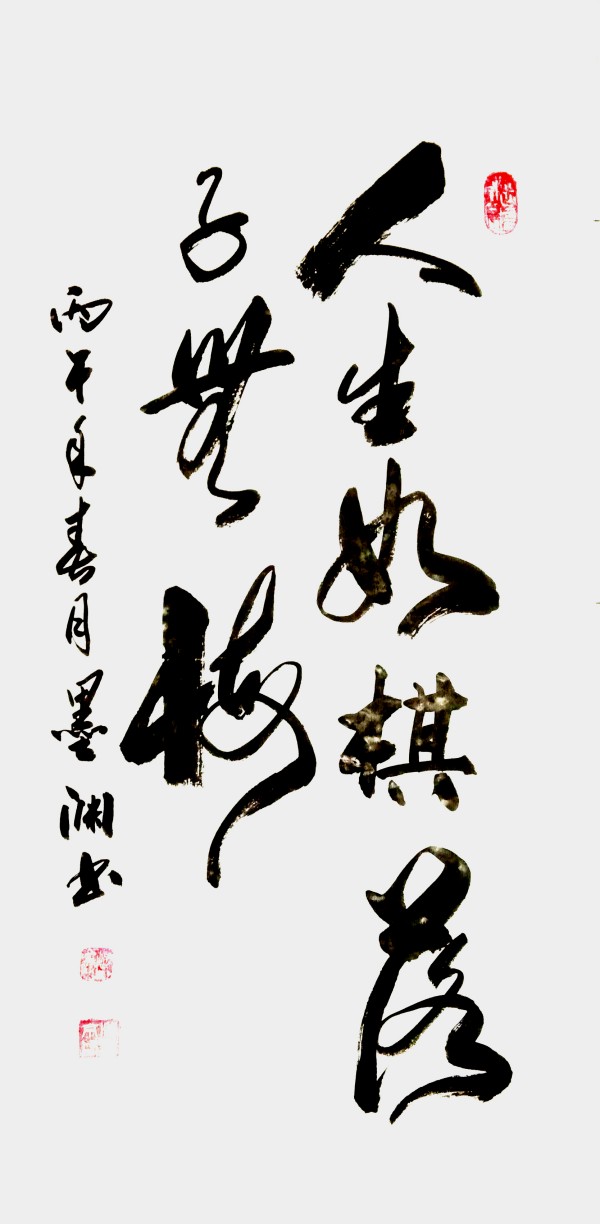 人生如棋落
子無悔
丙午年春月墨渊书